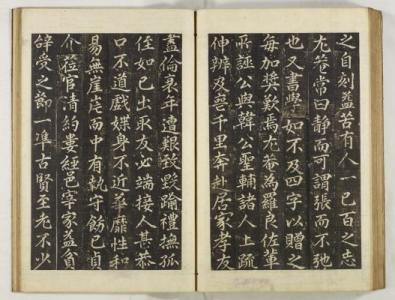 之自刻益苦有人一己百之志
尤菴常曰靜而可謂張而不弛
也又書學如不及四字以贈之
每加奬歎焉尤菴為羅良佐輩
所誣公與韓公聖輔諸人上疏
伸辨及薨千里奔赴居家孝友
盖倫衰年遭艱致毀踰禮撫孤
侄如己出取友必端接人甚恭
口不道戲媟身不近華靡性和
易無崖岸而中有執守飭己貞
介莅官清約婁經邑宰家益貧
辭受之節一準古賢至老不少